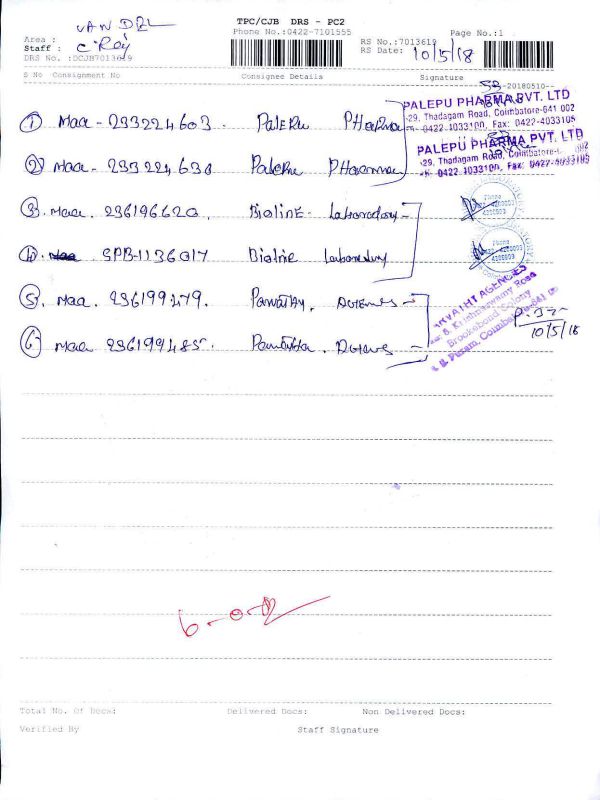 TPC/CJB DRS - PC2
Phone No.:0422-7101555
Page No.:1
VAN DEL
Area :
Staff : C. Roy
DRS No. :DCJB7013619
RS No.:7013619
RS Date: 10/5/18
S No Consignment No Consignee Details Signature
-20180510--
1 Maa - 233224603. Palepu Pharma
PALEPU PHARMA PVT. LTD
29, Thadagam Road, Coimbatore-641 002
0422-4033100, Fax: 0422-4033105
2 Maa - 233224630 Palepu Pharma
PALEPU PHARMA PVT. LTD
29, Thadagam Road, Coimbatore-
0422-4033100, Fax: 0422-4033105
3. Maa. 236196620. Bioline Laboratory
Phone
4200003
4300003
4. SPB-1136017 Bioline Laboratory
Phone
4200003
4300003
5. Maa. 236199479.
6 Maa 236199485.
AGENCIES
Krishnaswamy Road
Brookebond Colony
Puram, Coimbatore-641
10/5/18
6-0-
Total No. Of Docs: Delivered Docs: Non Delivered Docs:
Verified By Staff Signature